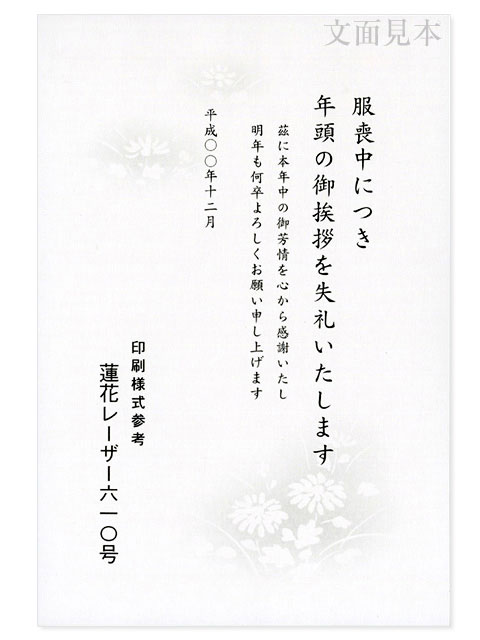 文面見本
服喪中につき
年頭の御挨拶を失礼いたします
茲に本年中の御芳情を心から感謝いたし
明年も何卒よろしくお願い申し上げます
平成〇〇年十二月
印刷様式参考
蓮花レーザー六一〇号